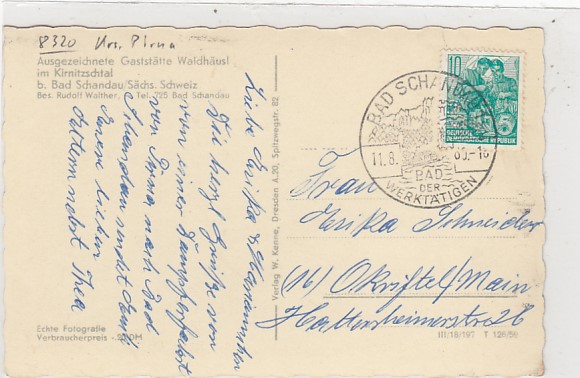 8320 Krs. Pirna
Ausgezeichnete Gaststätte Waldhäusl
im Kirnitzschtal
b. Bad Schandau/Sächs. Schweiz
Bes. Rudolf Walther, Tel. 725 Bad Schandau
Liebe Erika &
Die herzl. Grüße von
von einer Dampferfahrt
von Pirna nach Bad
Schandau sendet Euch
Eure lieben
Eltern nebst Thea
Echte Fotografie
Verbraucherpreis
Verlag W. Kenne, Dresden A.20, Spitzwegstr. 82
BAD SCHANDAU
11.8. 60.-18
BAD
DER
WERKTÄTIGEN
10
DEUTSCHE
DEMOKRATISCHE REPUBLIK
Frau
Erika Schneider
(16) Okriftel/Main
Hattersheimerstr. 26
III/18/197 T 126/58